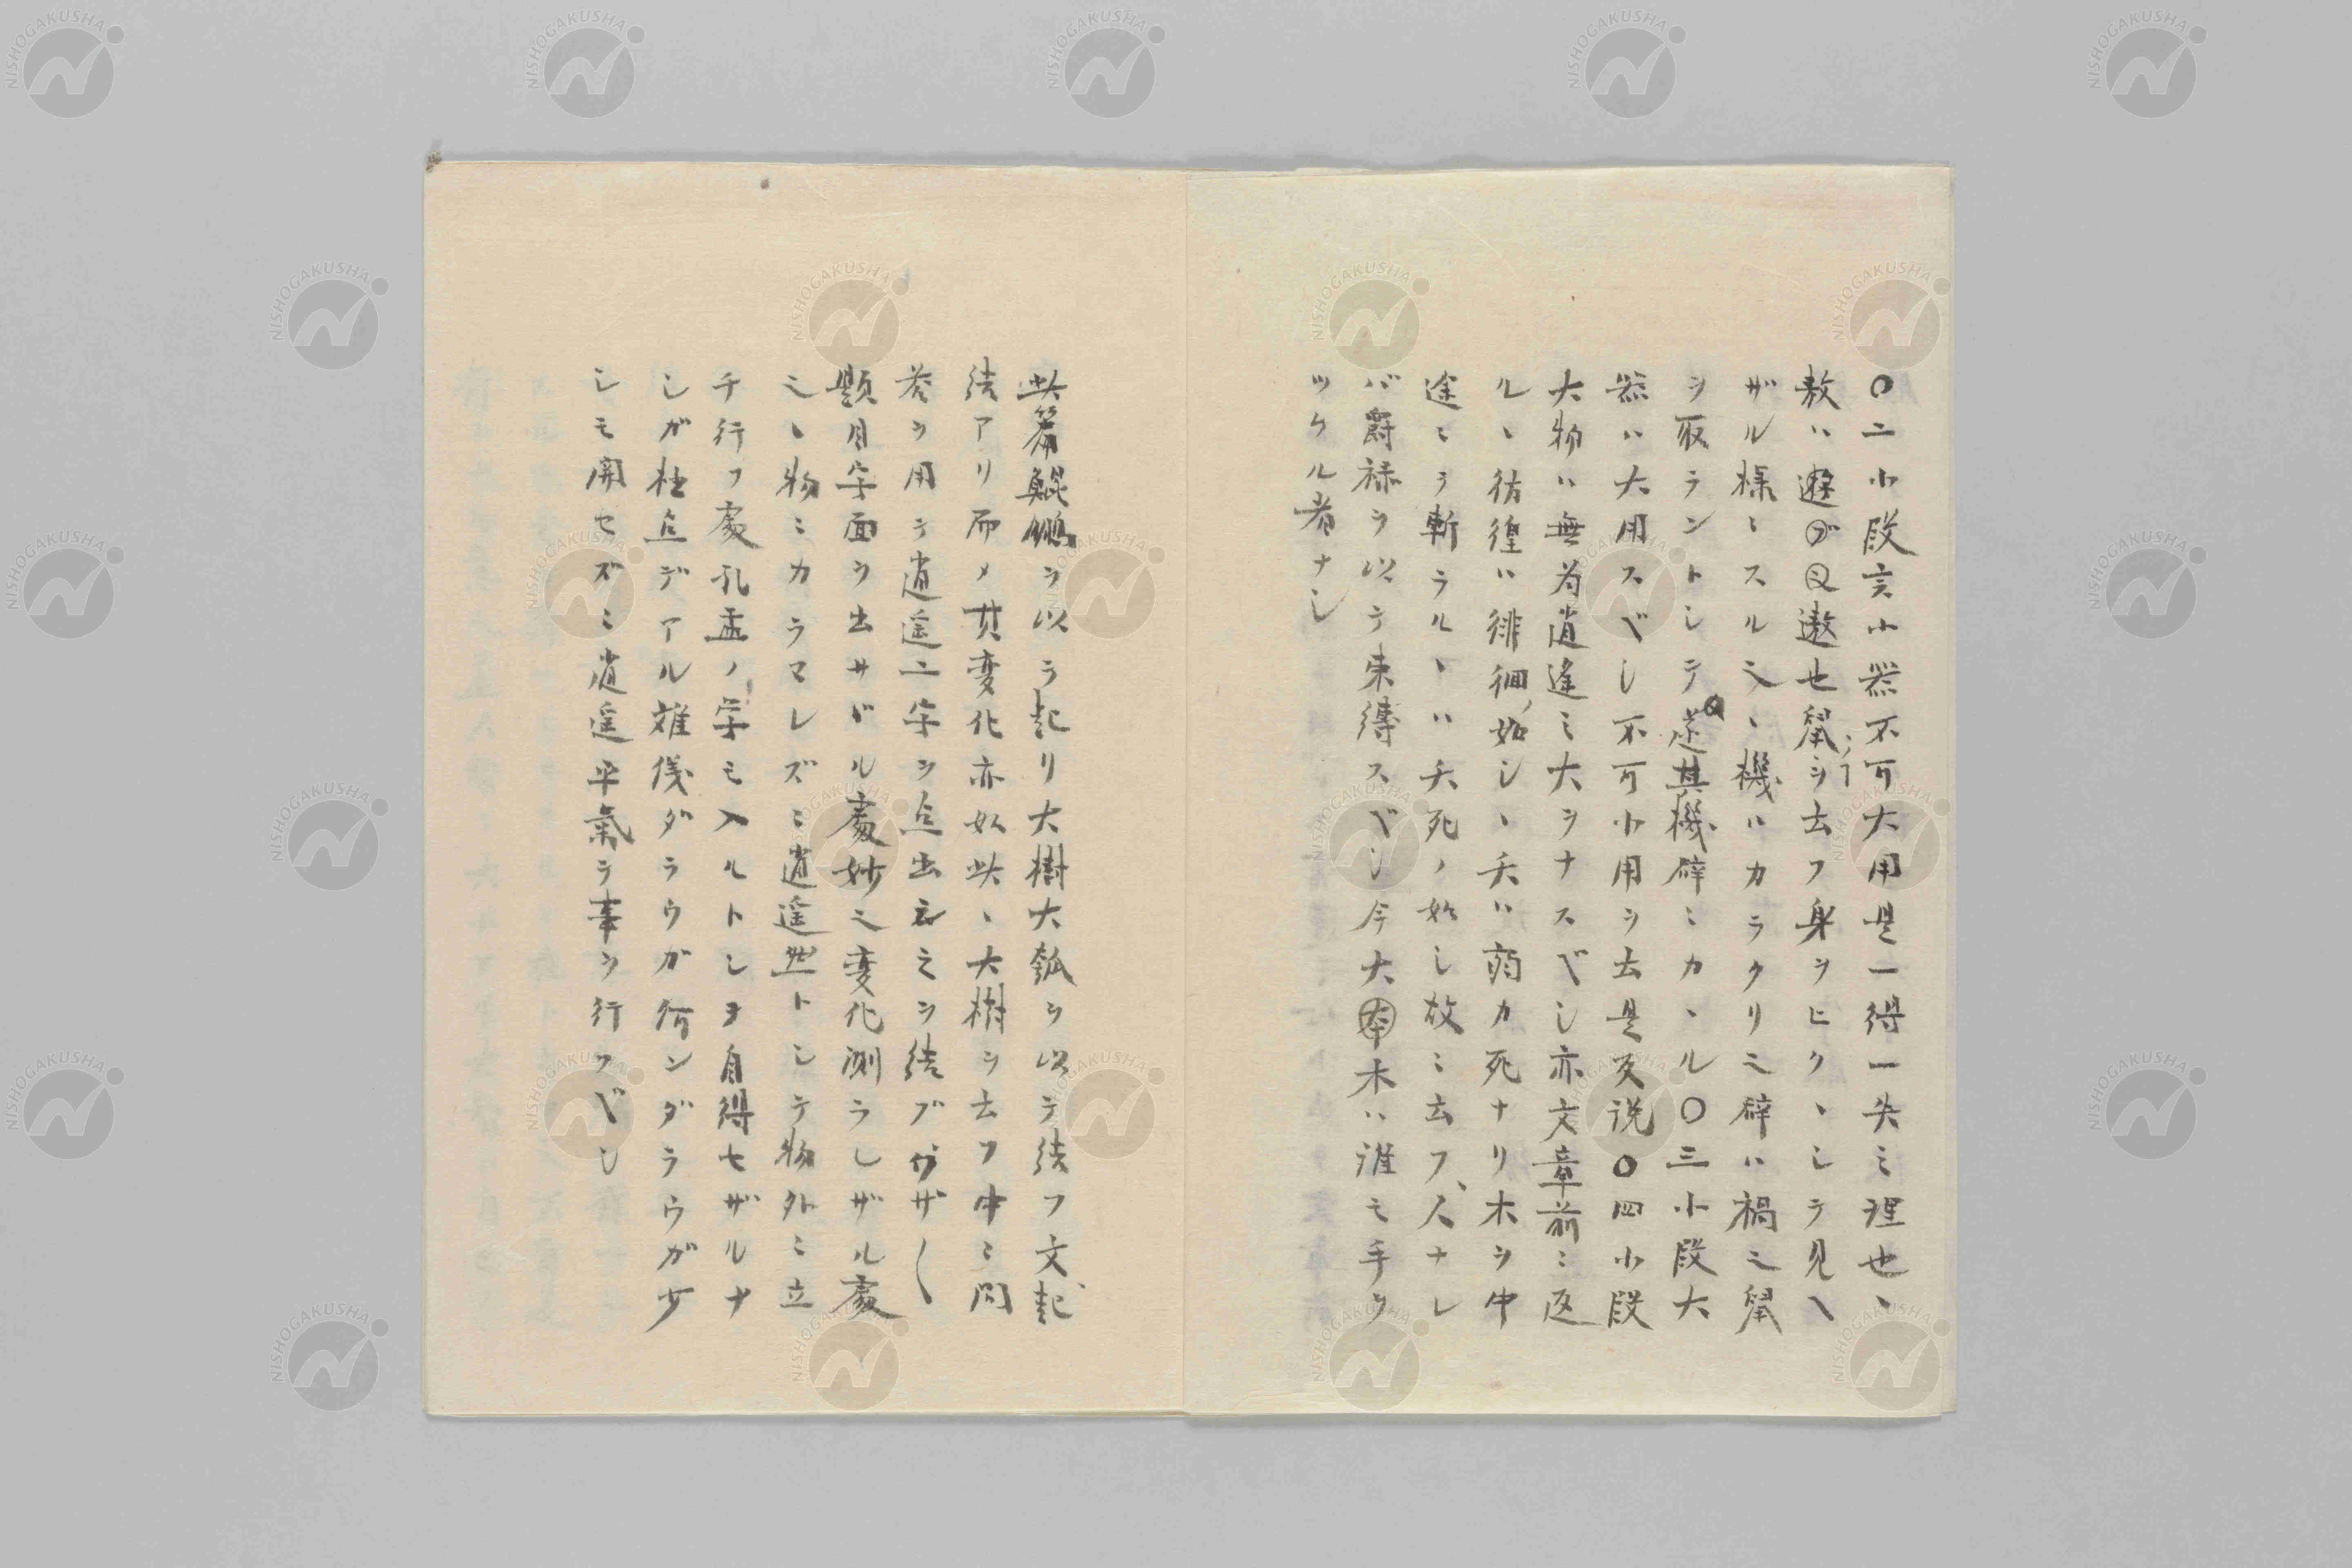 〇二小段言小器不可大用是一得一失之理也、
敖ハ遊ブ又遨也鼠ヲ去フ身ヲヒクヽシテ見ヘ
ザル様ニスル之、機ハカラクリ之辟ハ禍之鼠
ヲ取ラントシテ其機辟ニカヽル〇三小段大
器ハ大用スベし不可小用ヲ去是反説〇四小段
大物ハ無為逍逢之大ヲナスベし亦文章前ニ返
ルヽ彷徨ハ徘徊ノ如しヽ夭ハ若カ死ナリ木ヲ中
途ニテ斬ラルヽハ夭死ノ如し故ニ去フ、人ナレ
バ爵禄ヲ以テ束縳スベし今大木ハ誰モ手ヲ
ツケル者ナし
此篇鯤鵬ヲ以テ起リ大樹大瓠ヲ以テ結フ文、起
結アリ而メ其変化亦如此、大樹ヲ去フ中ニ問
答ヲ用テ逍遥二字ヲ点出云之ヲ結ブガザ〱
題目字面ヲ出サヾル處妙之変化測ラレザル處
之、物ニカラマレズニ逍遥然トシテ物外ニ立
チ行フ處孔孟ノ字モ入ルトシヲ自得セザルナ
しガ拙点デアル難儀ダラウガ何ンダラウガ少
しモ関セズニ逍遥平氣テ事ヲ行フべし
NISHOGAKUSHA